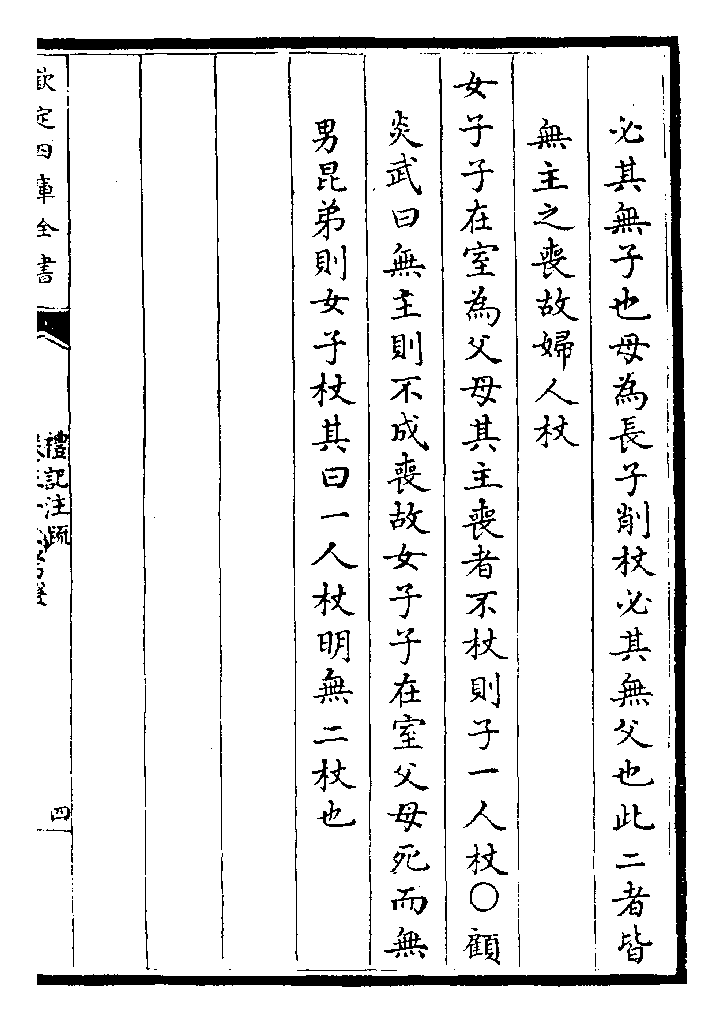 必其無子也母為長子削杖必其無父也此二者皆
無主之喪故婦人杖
女子子在室為父母其主喪者不杖則子一人杖○顧
炎武曰無主則不成喪故女子子在室父母死而無
男昆弟則女子杖其曰一人杖明無二杖也
欽定四庫全書
禮記注疏
四